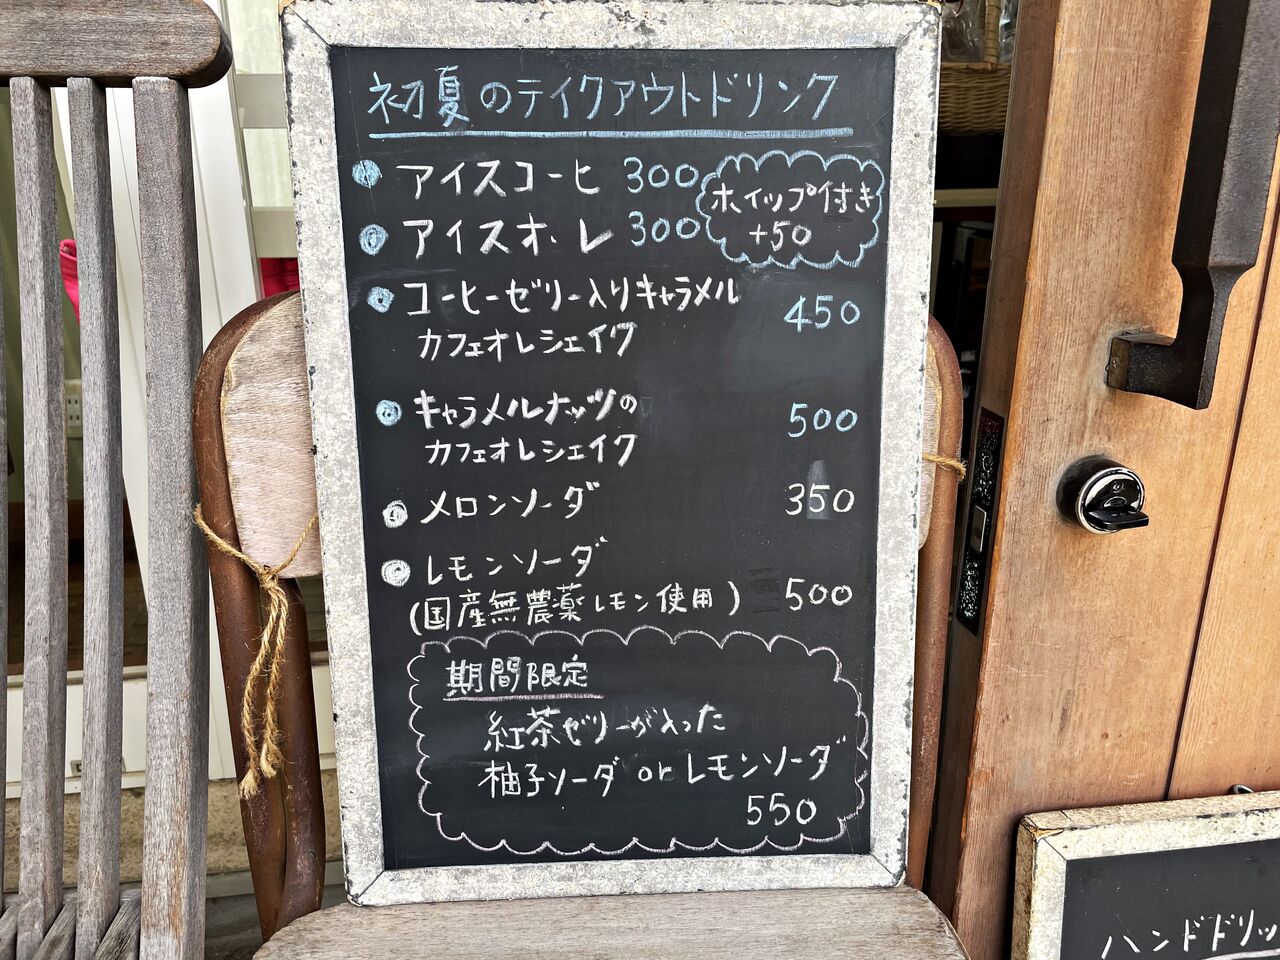 初夏のテイクアウトドリンク
アイスコーヒ 300
アイスオ・レ 300
ホイップ付き
+50
コーヒーゼリー入りキャラメル
カフェオレシェイク 450
キャラメルナッツの
カフェオレシェイク 500
メロンソーダ 350
レモンソーダ
(国産無農薬レモン使用) 500
期間限定
紅茶ゼリーが入った
柚子ソーダ or レモンソーダ
550
ハンドドリッ